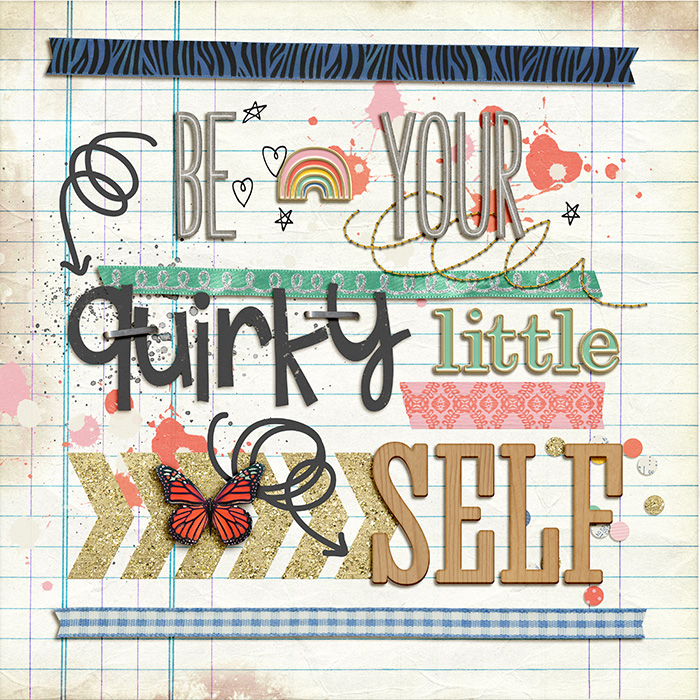 BE YOUR
quirky little
SELF